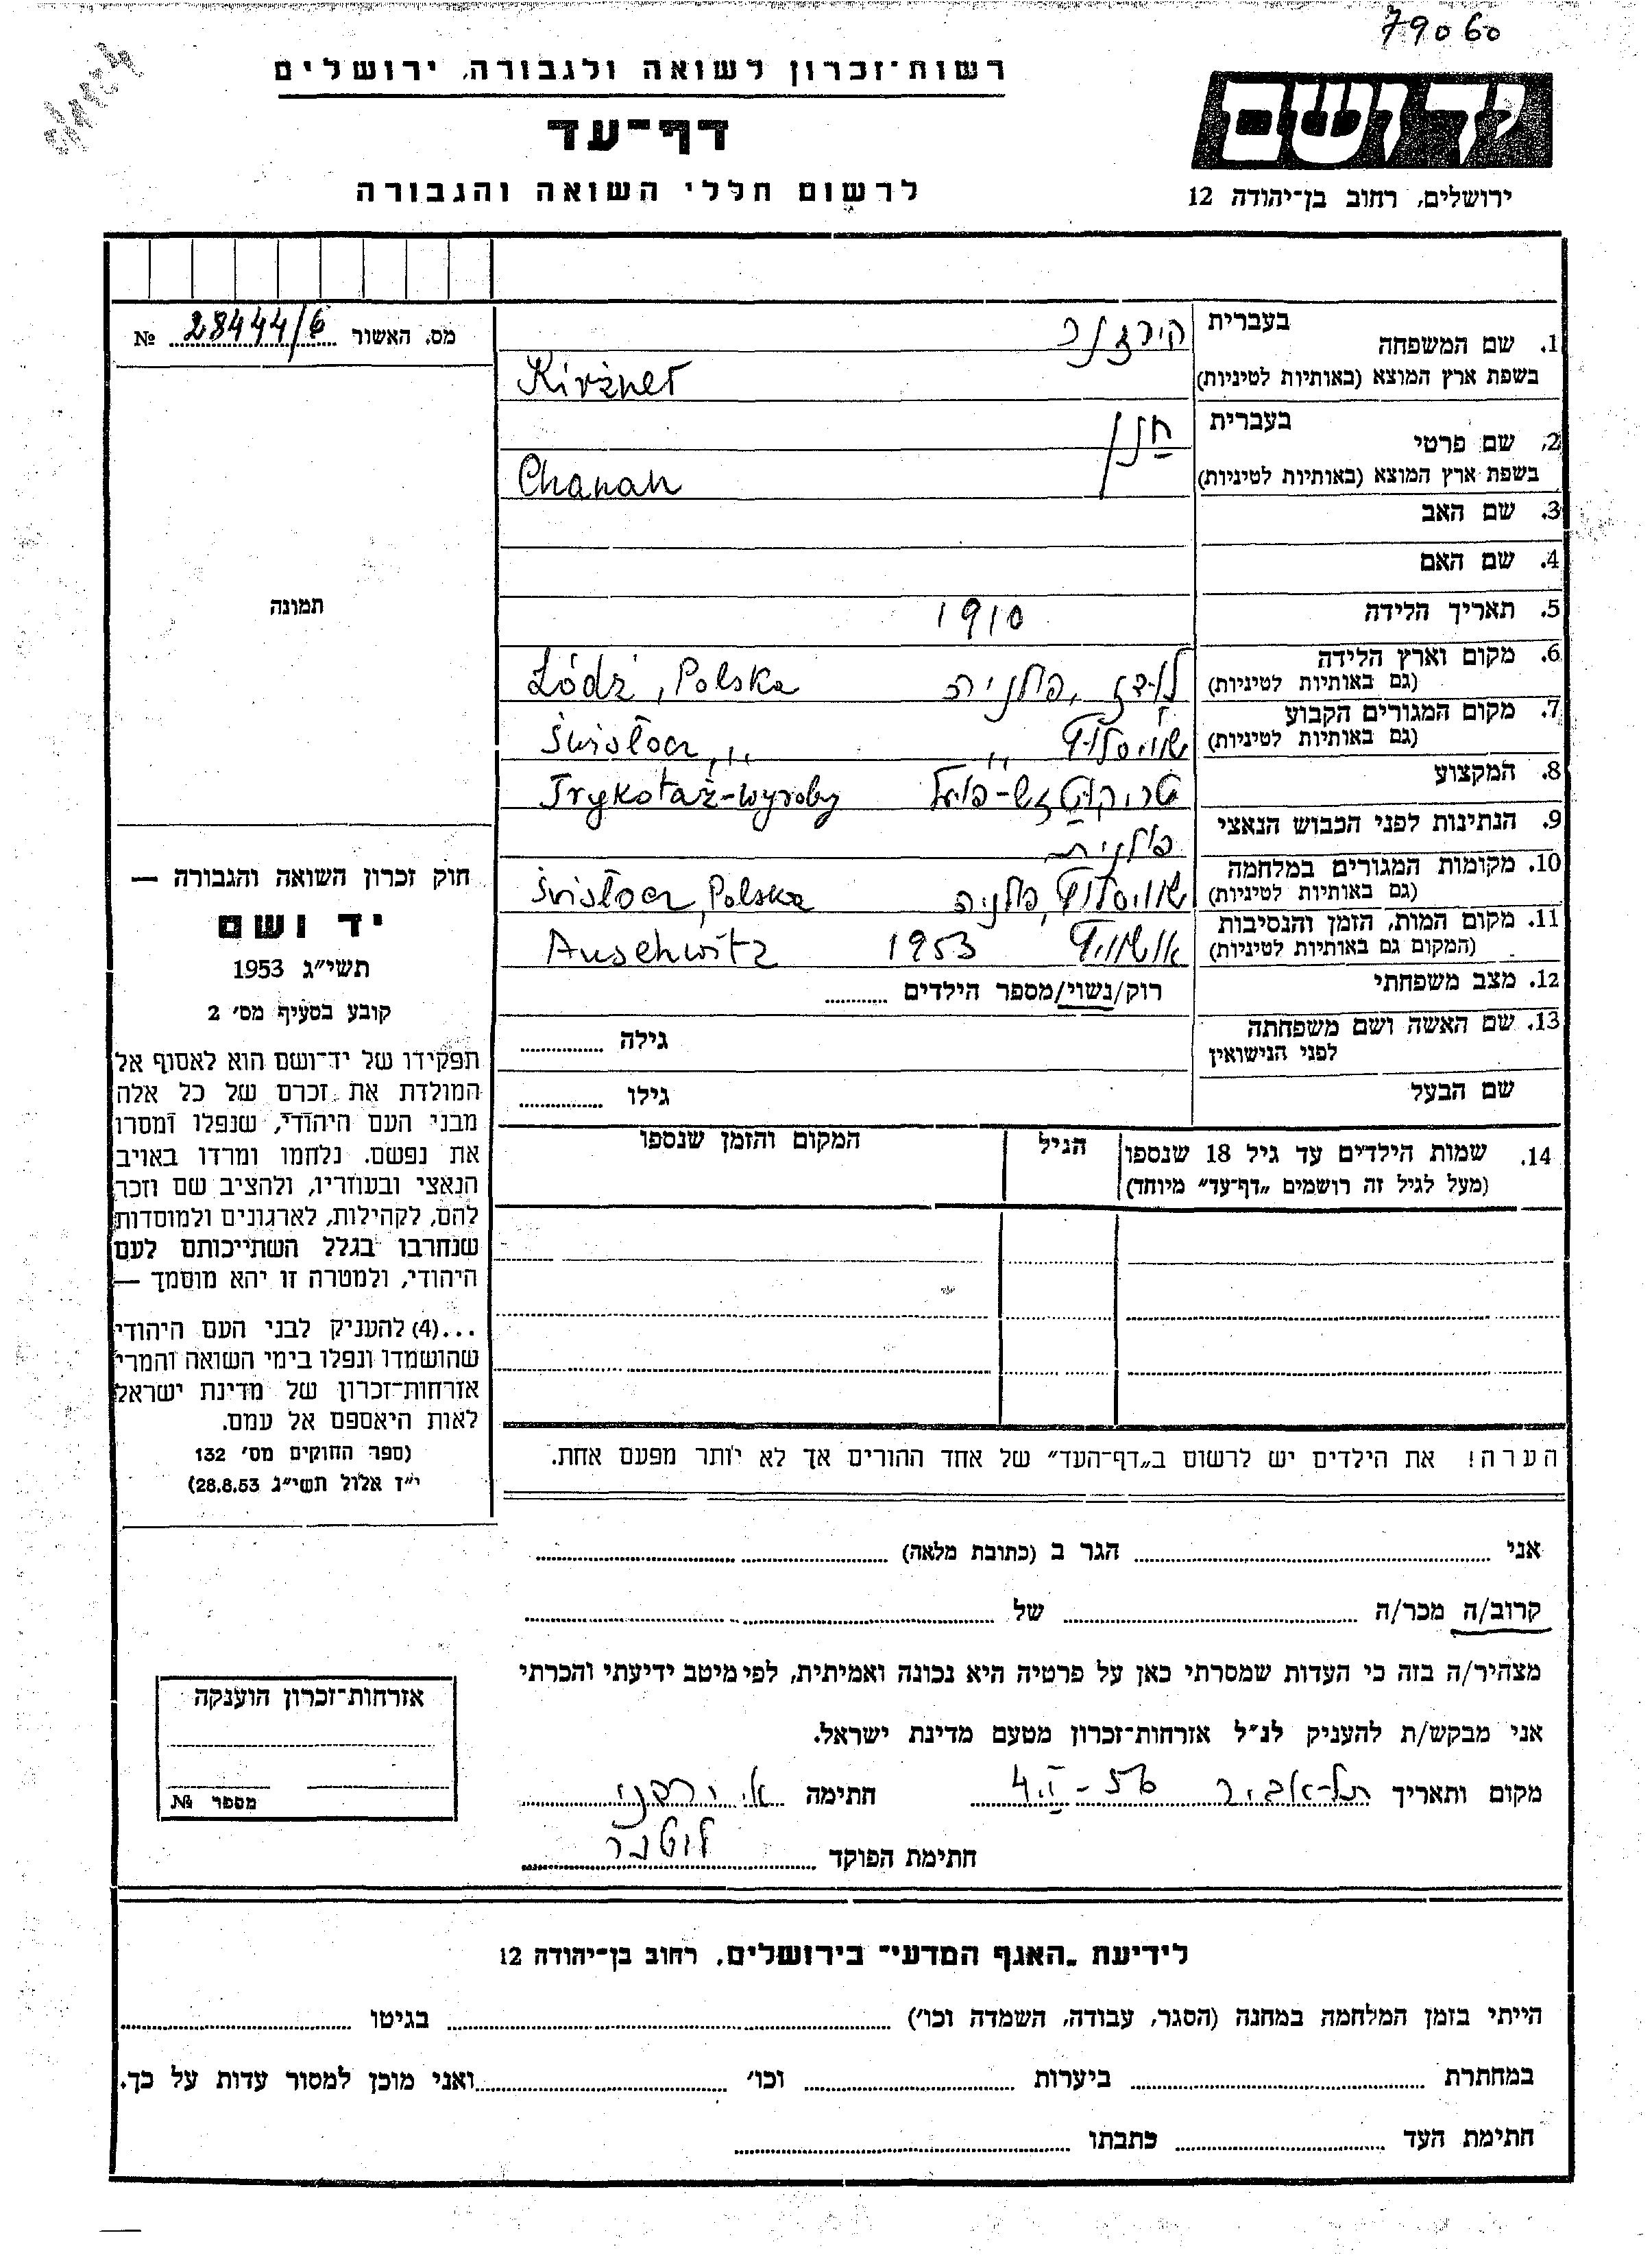 79060
רשות־זכרון לשואה ולגבורה, ירושלים
יד ושם
דף־עד
לרשום חללי השואה והגבורה
ירושלים, רחוב בן־יהודה 12
מס. האשור 28444/6 №
1. שם המשפחה
בעברית קירזנר
בשפת ארץ המוצא (באותיות לטיניות) Kirżner
2. שם פרטי
בעברית חנן
בשפת ארץ המוצא (באותיות לטיניות) Chanan
3. שם האב
4. שם האם
5. תאריך הלידה 1910
6. מקום וארץ הלידה לודז, פולניה Łódź, Polska
(גם באותיות לטיניות)
7. מקום המגורים הקבוע שוויסלוץ " Świsłocz, "
(גם באותיות לטיניות)
8. המקצוע טריקוטזש-פועל Trykotaż-wyroby
9. הנתינות לפני הכבוש הנאצי פולנית
10. מקומות המגורים במלחמה שוויסלוץ, פולניה Świsłocz, Polska
(גם באותיות לטיניות)
11. מקום המות, הזמן והנסיבות אושוויץ 1953 Auschwitz
(המקום גם באותיות לטיניות)
12. מצב משפחתי רוק/נשוי/מספר הילדים
13. שם האשה ושם משפחתה גילה
לפני הנישואין
שם הבעל גילו
14. שמות הילדים עד גיל 18 שנספו הגיל המקום והזמן שנספו
(מעל לגיל זה רושמים „דף־עד" מיוחד)
הערה! את הילדים יש לרשום ב„דף־העד" של אחד ההורים אך לא יותר מפעם אחת.
תמונה
חוק זכרון השואה והגבורה —
יד ושם
תשי"ג 1953
קובע בסעיף מס׳ 2
תפקידו של יד־ושם הוא לאסוף אל
המולדת את זכרם של כל אלה
מבני העם היהודי, שנפלו ומסרו
את נפשם. נלחמו ומרדו באויב
הנאצי ובעוזריו, ולהציב שם וזכר
להם, לקהילות, לארגונים ולמוסדות
שנחרבו בגלל השתייכותם לעם
היהודי, ולמטרה זו יהא מוסמך —
...(4) להעניק לבני העם היהודי
שהושמדו ונפלו בימי השואה והמרי
אזרחות־זכרון של מדינת ישראל
לאות היאספם אל עמם.
(ספר החוקים מס׳ 132
י"ז אלול תשי"ג 28.8.53)
אני הגר ב (כתובת מלאה)
קרוב/ה מכר/ה של
מצהיר/ה בזה כי העדות שמסרתי כאן על פרטיה היא נכונה ואמיתית, לפי מיטב ידיעתי והכרתי
אני מבקש/ת להעניק לנ"ל אזרחות־זכרון מטעם מדינת ישראל.
מקום ותאריך תל-אביב 4.I-56 חתימה
חתימת הפוקד
אזרחות־זכרון הוענקה
מספר №
לידיעת „האגף המדעי" בירושלים, רחוב בן־יהודה 12
הייתי בזמן המלחמה במחנה (הסגר, עבודה, השמדה וכו׳) בגיטו
במחתרת ביערות וכו׳ ואני מוכן למסור עדות על כך.
חתימת העד כתבתו